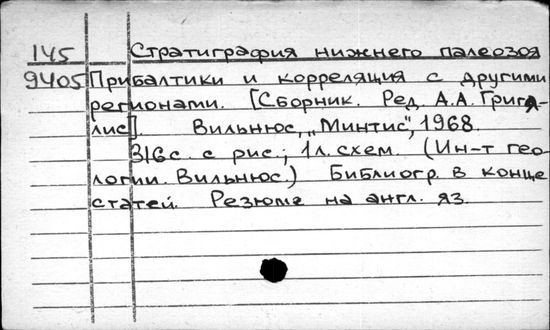 145 Стратиграфия нижнего палеозоя
9405 Прибалтики и корреляция с другими
регионами. [Сборник. Ред. А.А. Григя-
лис]. Вильнюс, „Минтис", 1968.
316с. с рис.; 1л. схем. (Ин-т гео-
логии. Вильнюс.) Библиогр. в конце
статей. Резюме на англ. яз.